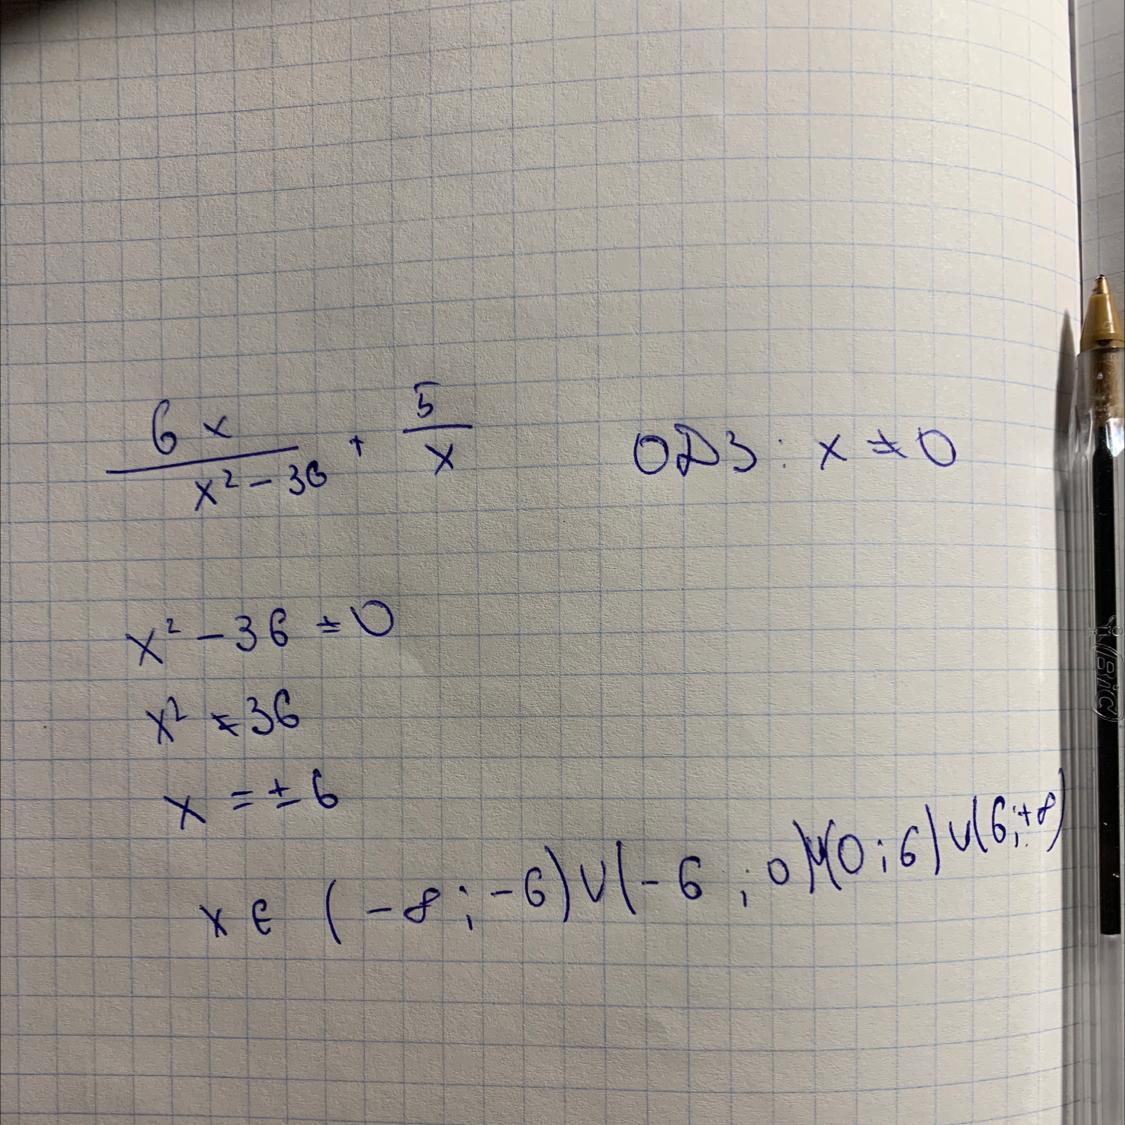 6x / x² - 36 + 5 / x ОДЗ: x ≠ 0
x² - 36 ≠ 0
x² ≠ 36
x = ± 6
x ∈ (-∞; -6) ∪ (-6; 0) ∪ (0; 6) ∪ (6; +∞)
Bic